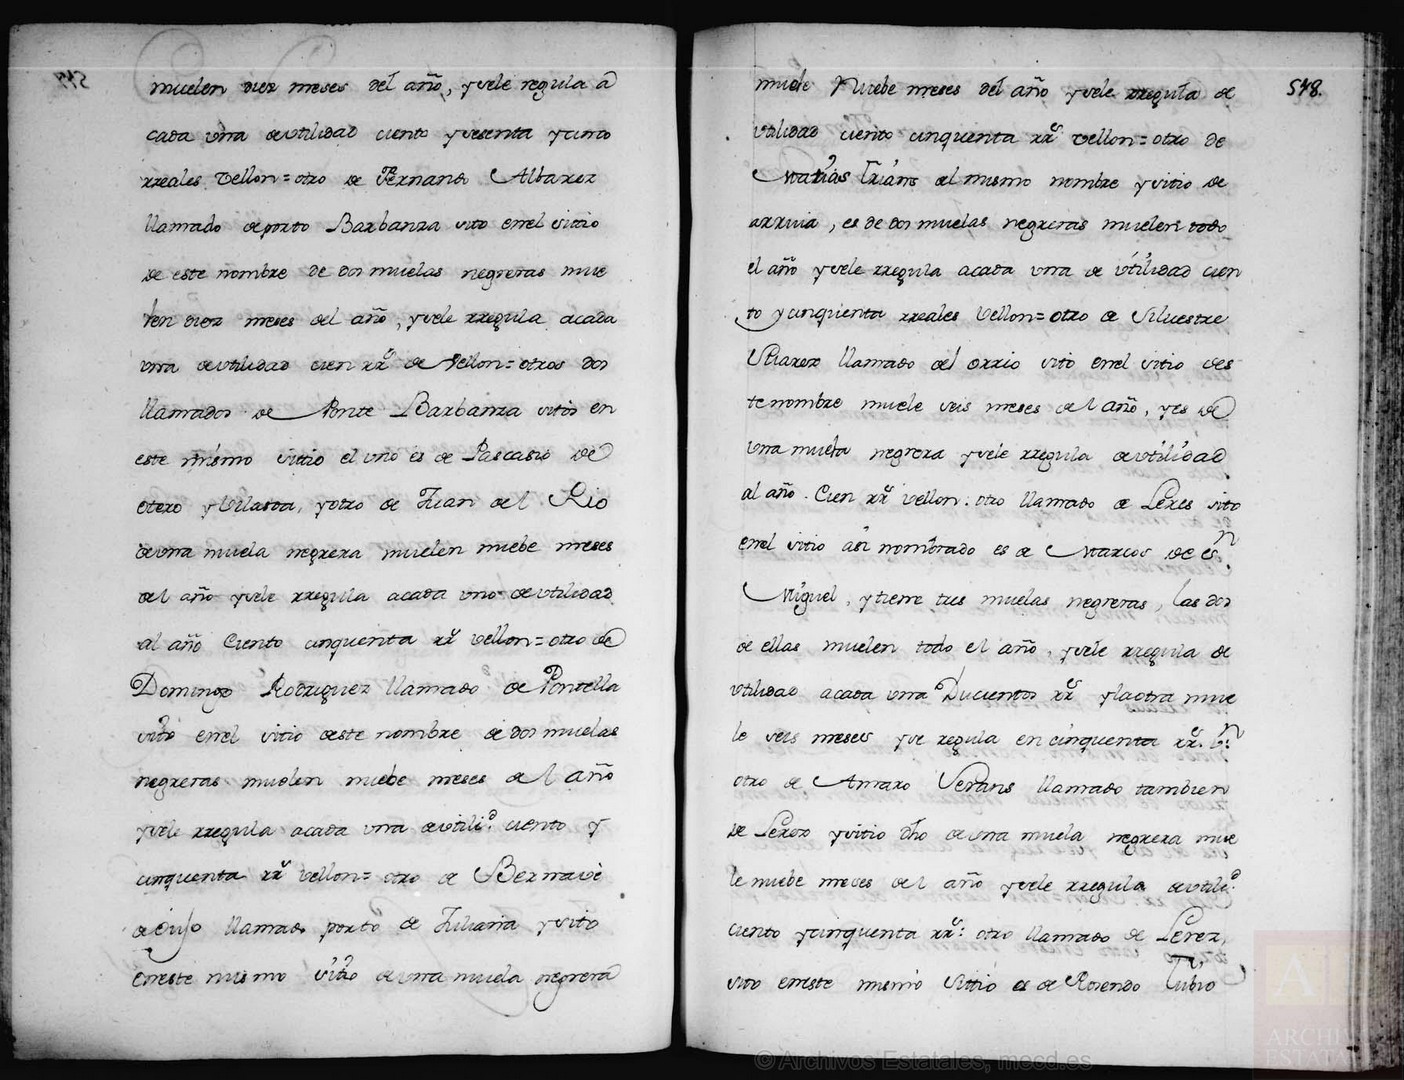 muelen diez meses del año, ysele regula a
cada vna deutilidad ciento ysesenta ycinco
rreales Vellon = otro de Fernando Albarez
llamado deporto Barbanza sito enel sitio
de este nombre de dos muelas negreras mue
len diez meses del año, ysele rregula acada
vna deutilidad cien rr.^s de Vellon = otros dos
llamados de Ponte Barbanza sitos en
este mismo sitio el vno es de Pascasio de
Otero y Ullasoa, yotro de Juan del Rio
devna muela negrera muelen nuebe meses
del año ysele rregula acada vno deutilidad
al año Ciento cinquenta rr.^s vellon = otro de
Domingo Rodriguez llamado de Pontella
sito enel sitio deste nombre de dos muelas
negreras muelen nuebe meses del año
ysele rregula acada vna deutili.^d ciento y
cinquenta rr.^s vellon = otro de Bernave
llamado porto de Juliana ysito
eneste mismo sitio devna muela negrera
548.
muele Nuebe meses del año ysele rregula de
vtilidad ciento cinquenta rr.^s Vellon = otro de
Matias del mismo nombre ysitio de
arriua, es de dos muelas negreras muelen todo
el año ysele rregula acada vna de vtilidad cien
to ycinquenta rreales Vellon = otro de Siluestre
Suarez llamado del orrio sito enel sitio des
te nombre muele seis meses del año, yes de
vna muela negrera ysele rregula deutilidad
al año. Cien rr.^s vellon: otro llamado de Leres sito
enel sitio asi nombrado es de Marcos de S.^n
Miguel, ytiene tres muelas negreras, las dos
de ellas muelen todo el año, ysele rregula de
vtilidad acada vna Ducientos rr.^s ylaotra mue
le seis meses yse regula en cinquenta rr.^s b.^n
otro de Amaro llamado tambien
de Lerez ysitio dho devna muela negrera mue
le nuebe meses del año ysele rregula deutili.^d
ciento ycinquenta rr.^s: otro llamado de Lerez,
sito eneste mismo Sittio es de Rosendo Tubio
© Archivos Estatales, mecd.es
ARCHIV
ESTATA